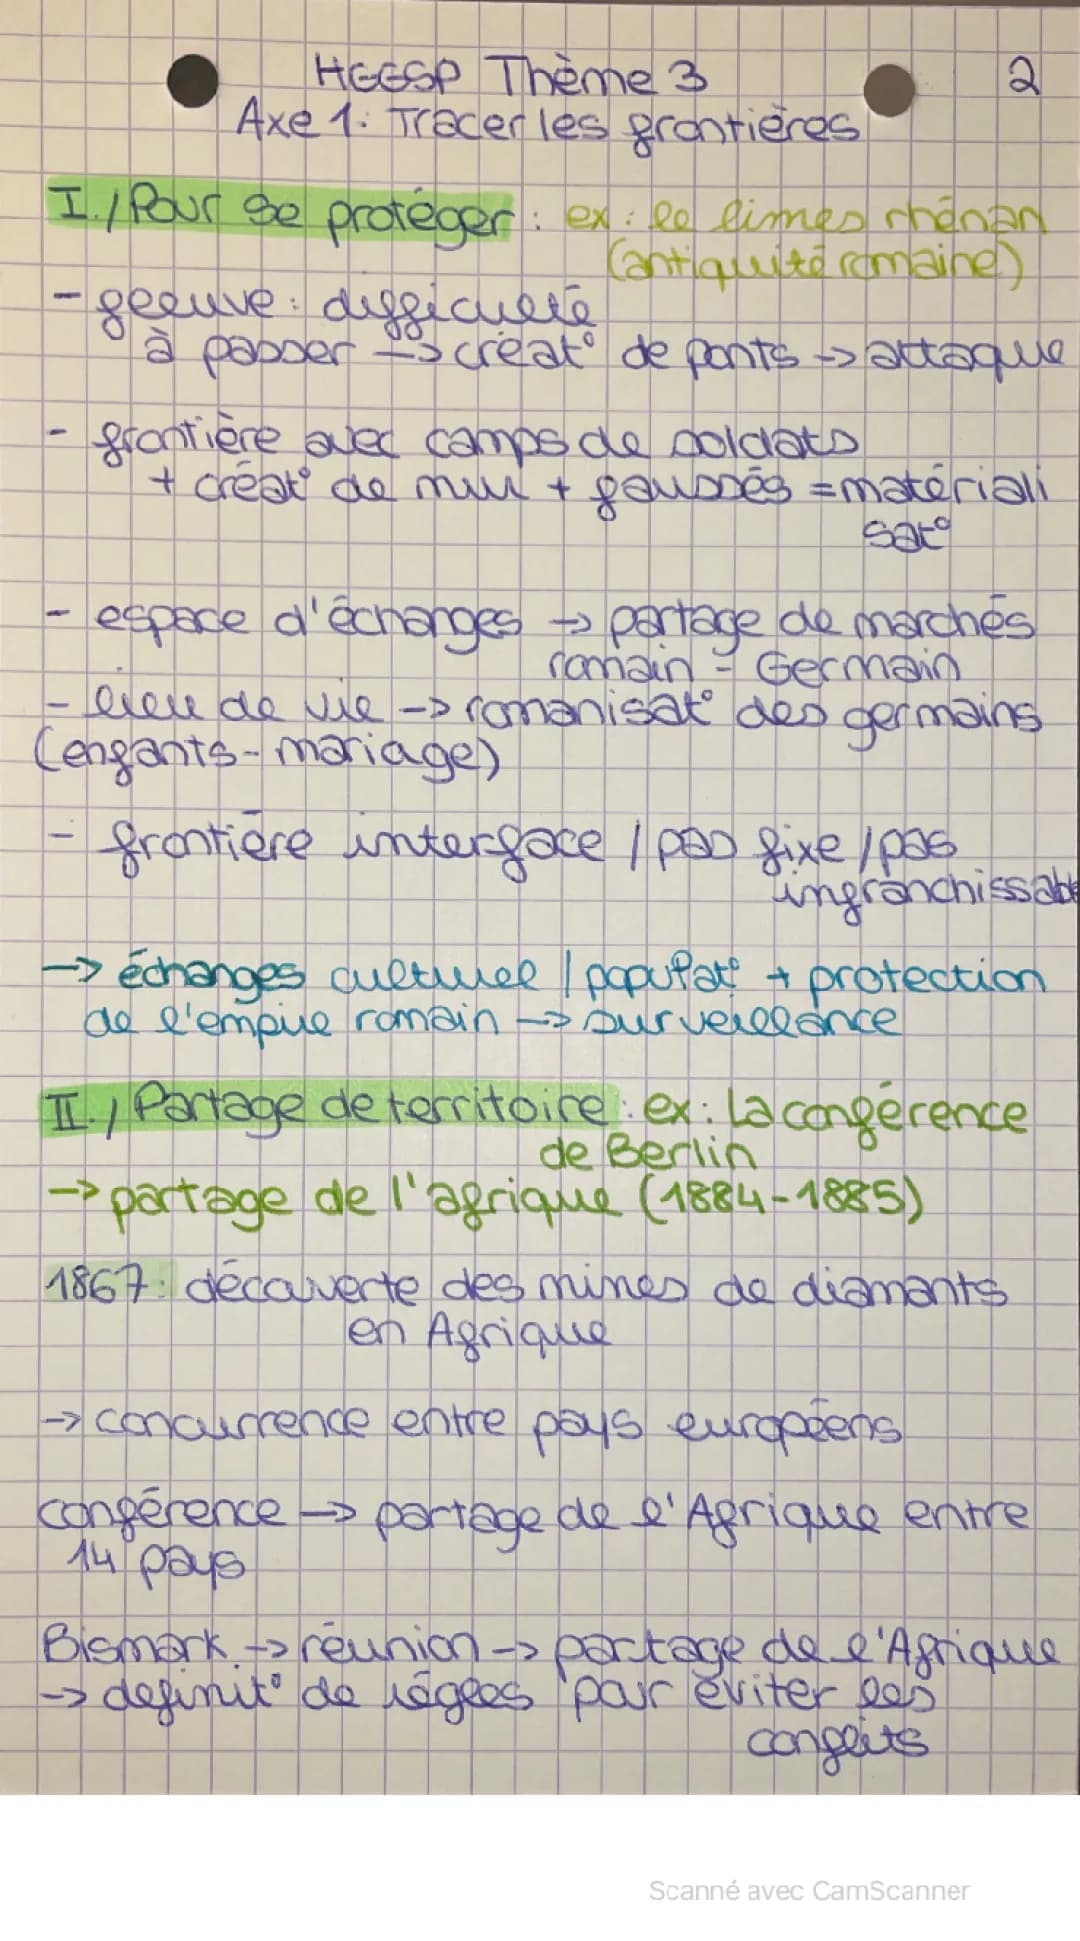 HGGSP Thème 3
2
Axe 1: Tracer les frontières
I./ Pour se protéger : ex : le limes rhénan
(antiquité romaine)
- fleuve : difficulté
à passer -> créat° de ponts -> attaque
- frontière avec camps de soldats
+ créat° de mur + faussés = matériali
sat°
- espace d'échanges -> partage de marchés
romain - Germain
- lieu de vie -> romanisat° des germains
(enfants - mariage)
- frontière interface / pas fixe / pas
infranchissable
-> échanges culturel / populat° + protection
de l'empire romain -> surveillance
II./ Partage de territoire : ex : La conférence
de Berlin
-> partage de l'afrique (1884-1885)
1867 : découverte des mines de diamants
en Afrique
-> concurrence entre pays européens
conférence -> partage de l'Afrique entre
14 pays
Bismark -> réunion -> partage de l'Afrique
-> définit° de règles pour éviter les
conflits
Scanné avec CamScanner